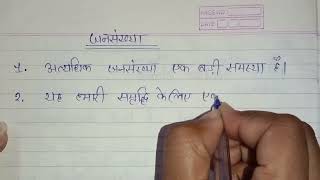 PAGE NO.:
DATE:
जनसंख्या
1. अत्यधिक जनसंख्या एक बड़ी समस्या है।
2. यह हमारी समृद्धि के लिए